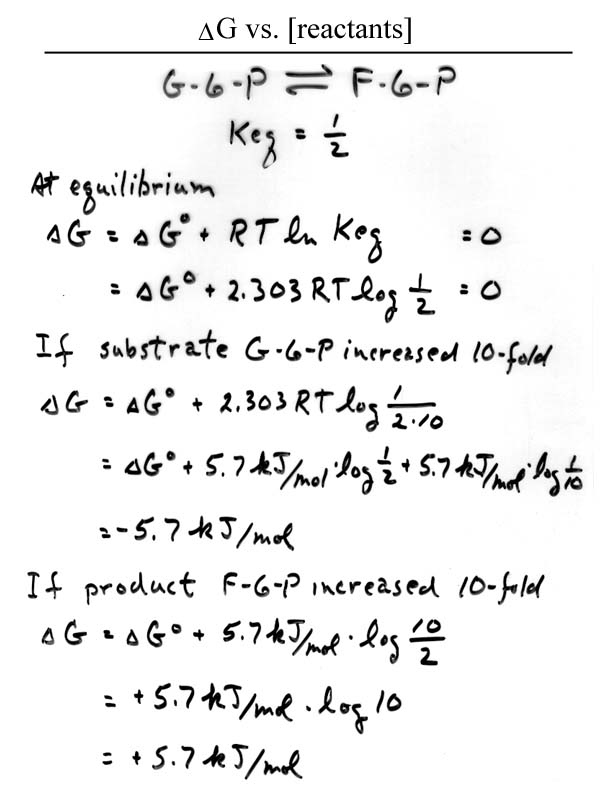 ΔG vs. [reactants]
G-6-P ⇌ F-6-P
Keq = 1/2
At equilibrium
ΔG = ΔG° + RT ln Keq = 0
= ΔG° + 2.303 RT log 1/2 = 0
If substrate G-6-P increased 10-fold
ΔG = ΔG° + 2.303 RT log 1/2·10
= ΔG° + 5.7 kJ/mol · log 1/2 + 5.7 kJ/mol · log 1/10
= -5.7 kJ/mol
If product F-6-P increased 10-fold
ΔG = ΔG° + 5.7 kJ/mol · log 10/2
= + 5.7 kJ/mol · log 10
= + 5.7 kJ/mol